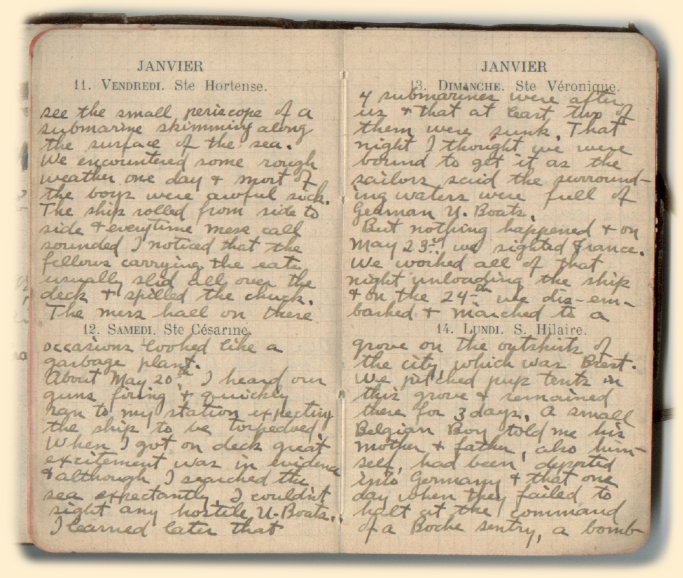 JANVIER
11. VENDREDI. Ste Hortense.
see the small periscope of a
submarine skimming along
the surface of the sea.
We encountered some rough
weather one day & most of
the boys were awful sick.
The ship rolled from side to
side & everytime mess call
sounded I noticed that the
fellows carrying the eats
usually slid all over the
deck & spilled the chuck.
The mess hall on these
12. SAMEDI. Ste Césarine.
occasions looked like a
garbage plant.
About May 20th I heard our
guns firing & quickly
ran to my station expecting
the ship to be torpedoed.
When I got on deck great
excitement was in evidence
& although I searched the
sea expectantly I couldn't
sight any hostile U-Boats.
I learned later that
JANVIER
13. DIMANCHE. Ste Véronique.
4 submarines were after
us & that at least two of
them were sunk. That
night I thought we were
bound to get it as the
sailors said the surround-
ing waters were full of
German U. Boats.
But nothing happened & on
May 23rd we sighted France.
We worked all of that
night unloading the ship
& on the 24th we dis-em-
barked & marched to a
14. LUNDI. S. Hilaire.
grove on the outskirts of
the city, which was Brest.
We pitched pup tents in
this grove & remained
there for 3 days. A small
Belgian Boy told me his
mother & father, also him-
self, had been deported
into Germany & that one
day when they failed to
halt at the command
of a Boche sentry, a bomb